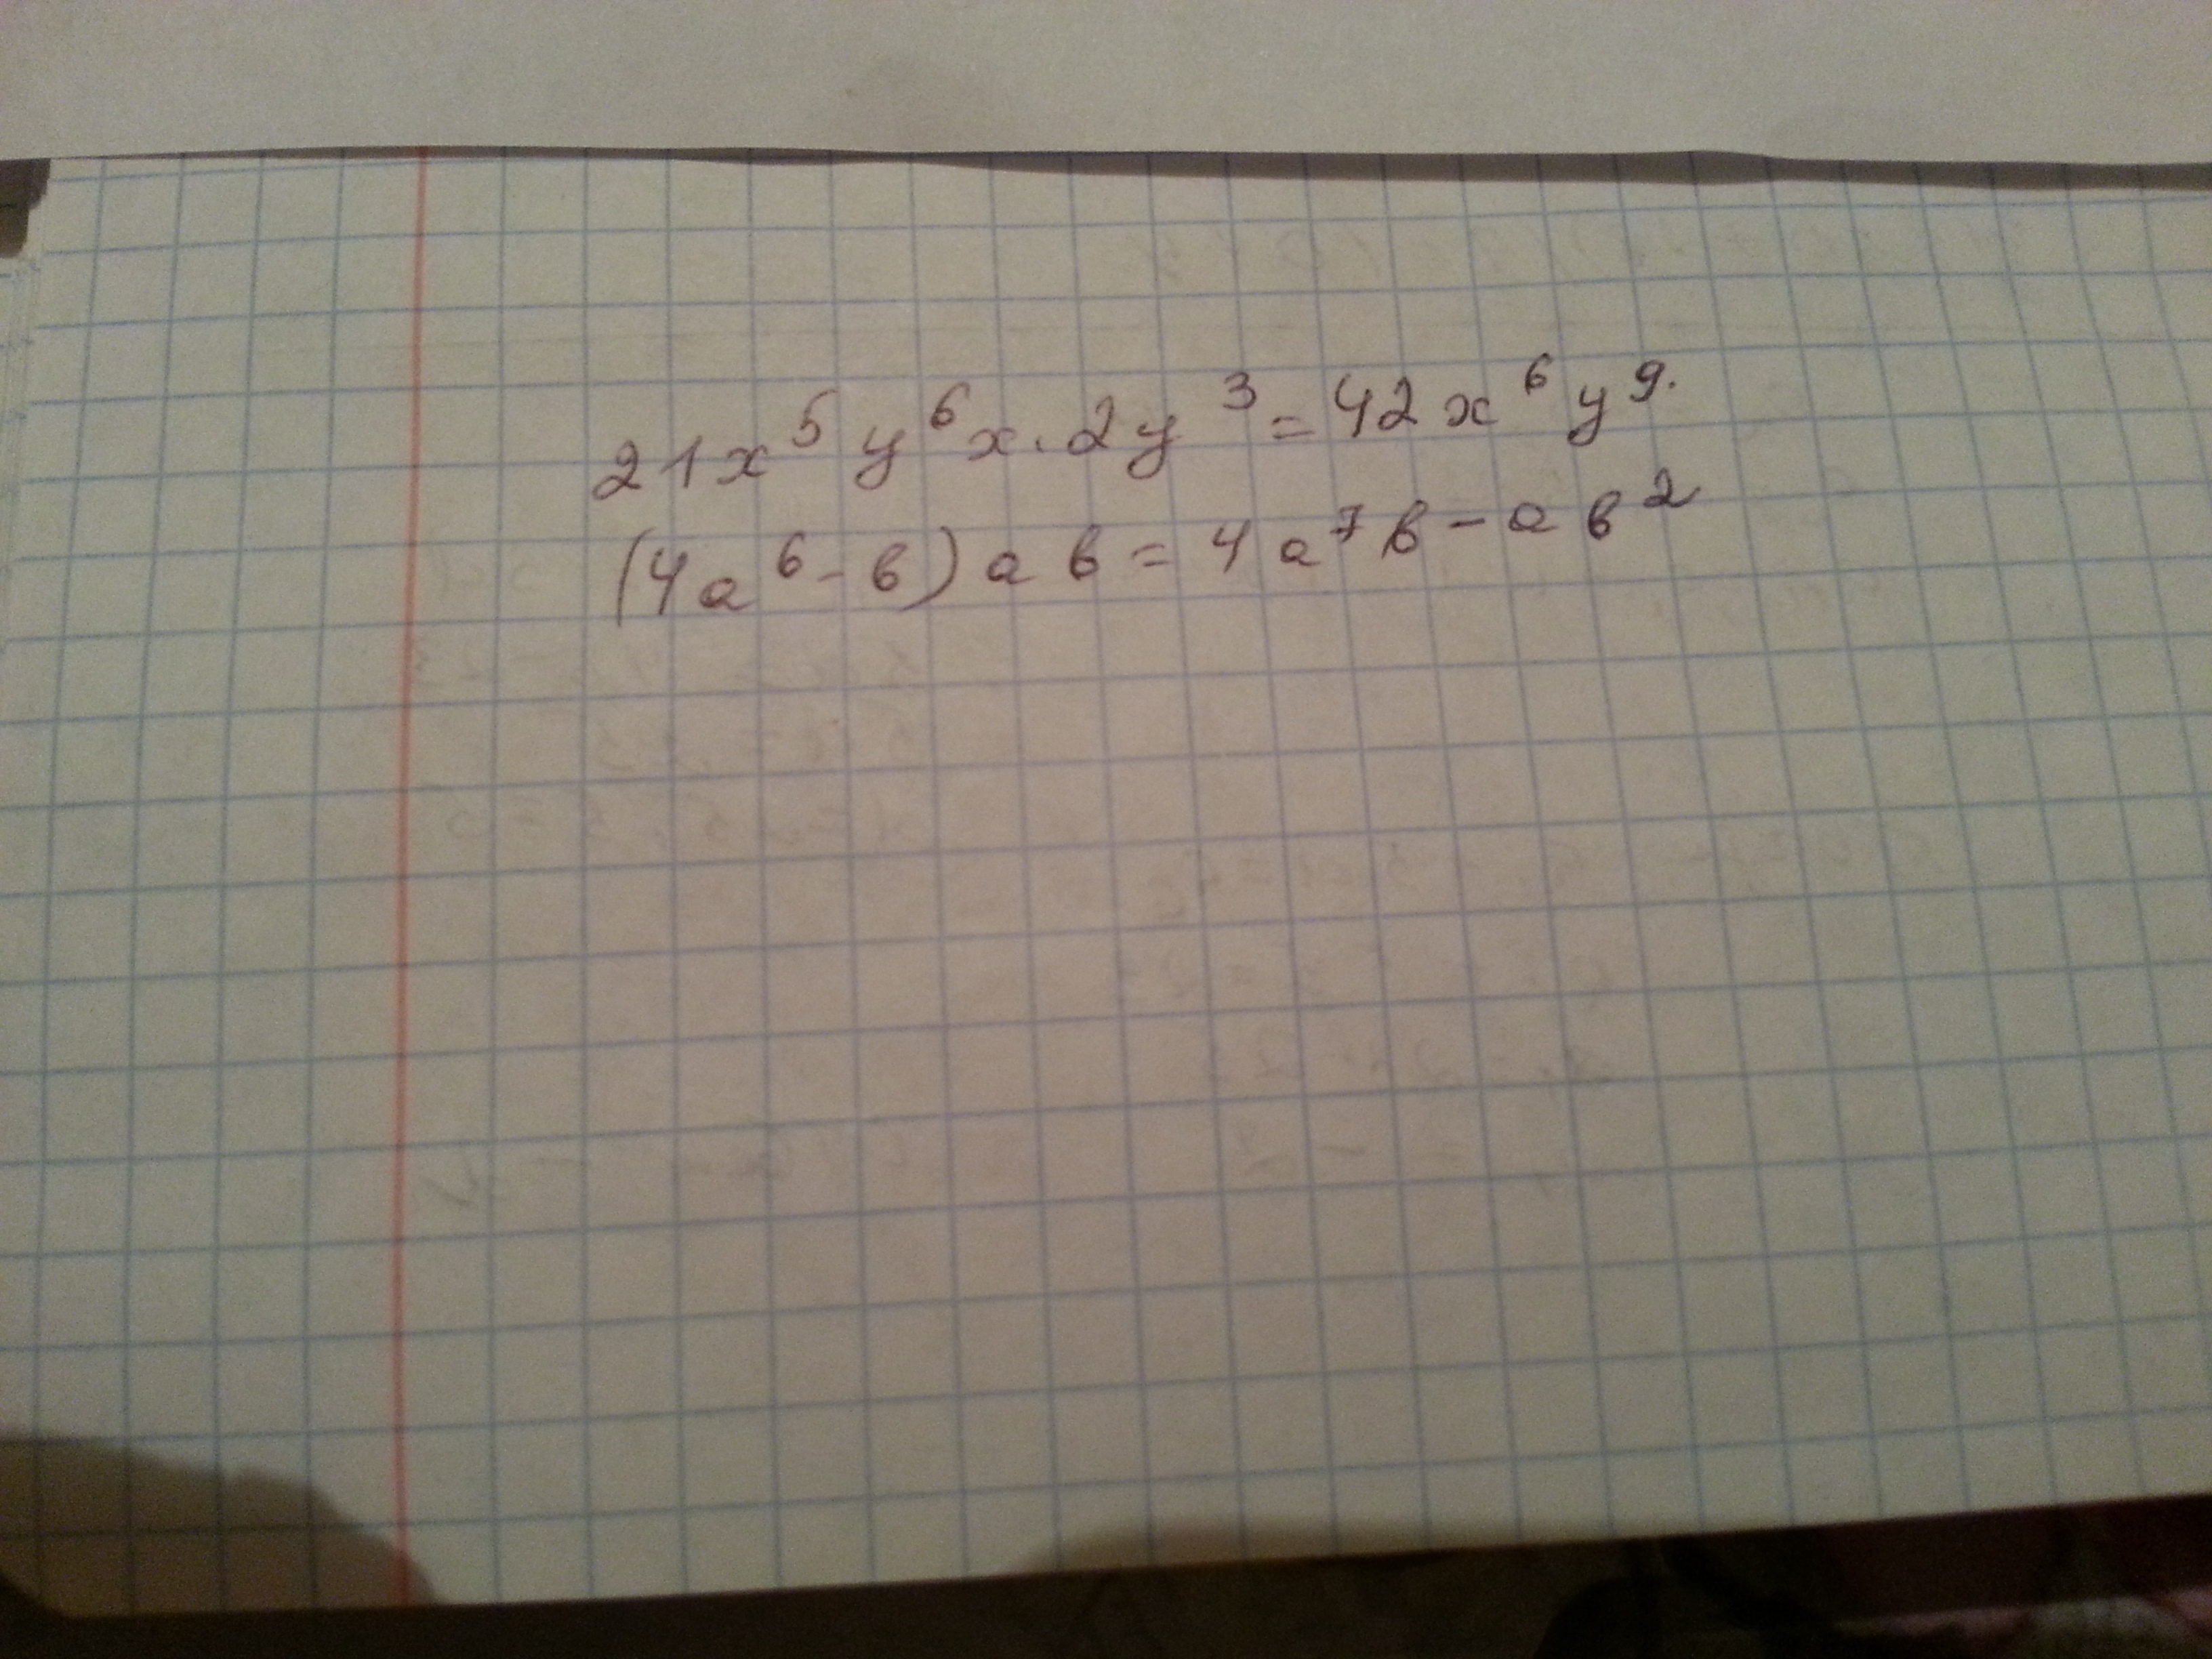 21x⁵y⁶x·2y³=42x⁶y⁹.
(4a⁶-в)aв=4a⁷в-aв²